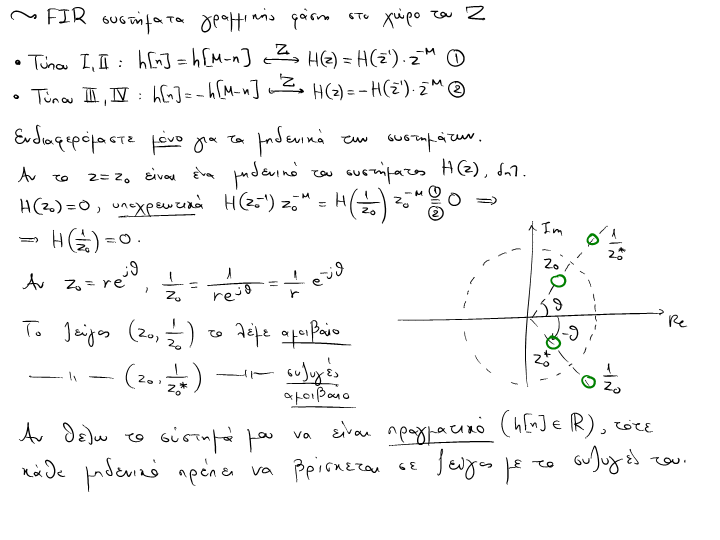 ~ FIR συστήματα γραμμικής φάσης στο χώρο του Z
• Τύποι I, II : h[n] = h[M-n] ⟷^Z H(z) = H(z⁻¹)·z^{-M} ①
• Τύποι III, IV : h[n] = -h[M-n] ⟷^Z H(z) = -H(z⁻¹)·z^{-M} ②
Ενδιαφερόμαστε μόνο για τα μηδενικά των συστημάτων.
Αν το z=z₀ είναι ένα μηδενικό του συστήματος H(z), δηλ.
H(z₀)=0, υποχρεωτικά H(z₀⁻¹) z₀^{-M} = H(1/z₀) z₀^{-M} =^{①}_{②} 0 ⟹
⟹ H(1/z₀) = 0.
Αν z₀ = re^{jθ}, 1/z₀ = 1/re^{jθ} = 1/r e^{-jθ}
Το ζεύγος (z₀, 1/z₀) το λέμε αμοιβαίο
—— " —— (z₀, 1/z₀*) —— " —— συζυγές
αμοιβαίο
Im
1/z₀*
z₀
θ
Re
-θ
z₀*
1/z₀
Αν θέλω το σύστημά μου να είναι πραγματικό (h[n] ∈ ℝ), τότε
κάθε μηδενικό πρέπει να βρίσκεται σε ζεύγος με το συζυγές του.